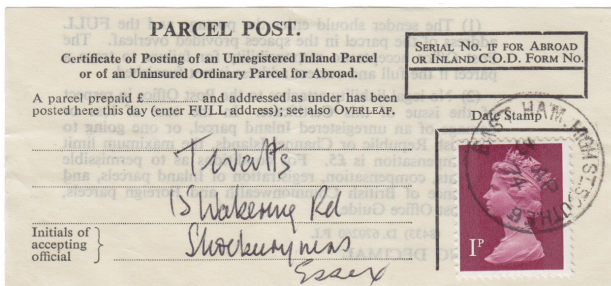 PARCEL POST.
Certificate of Posting of an Unregistered Inland Parcel
or of an Uninsured Ordinary Parcel for Abroad.
SERIAL NO. IF FOR ABROAD
OR INLAND C.O.D. FORM NO.
A parcel prepaid £ and addressed as under has been
posted here this day (enter FULL address); see also OVERLEAF.
Date Stamp
EAST HAM. HIGH ST. SOUTH E.6
T Watts
15 Wakering Rd
Shoeburyness
Essex
Initials of
accepting
official
1P